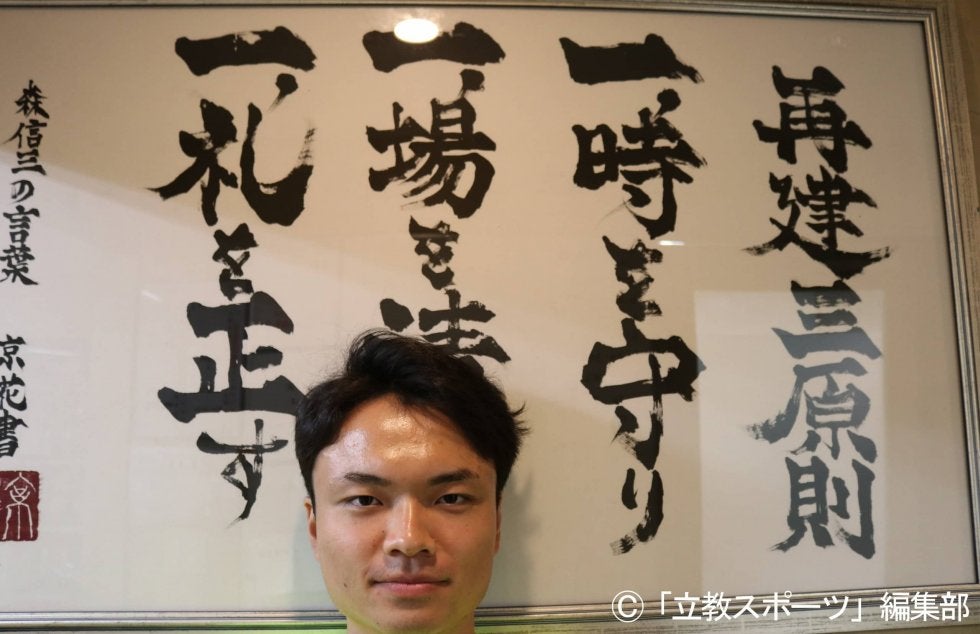 再建三原則
一、時を守り
一、場を清
一、礼を正す
森信三の言葉
京花書
©「立教スポーツ」編集部